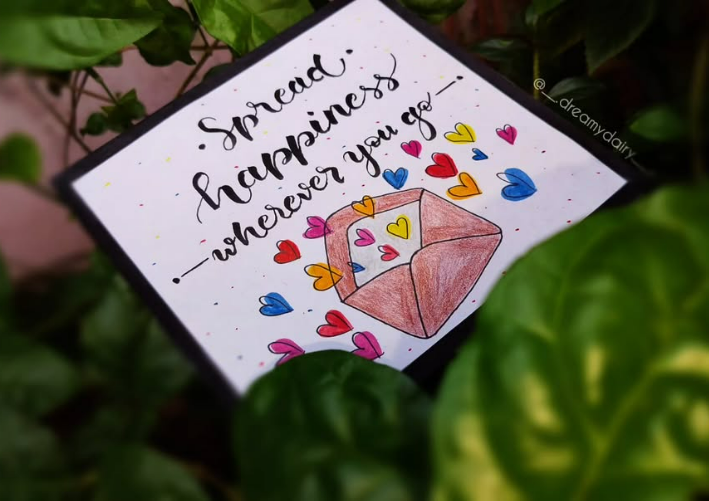 Spread
happiness
wherever you go
@__dreamydairy_